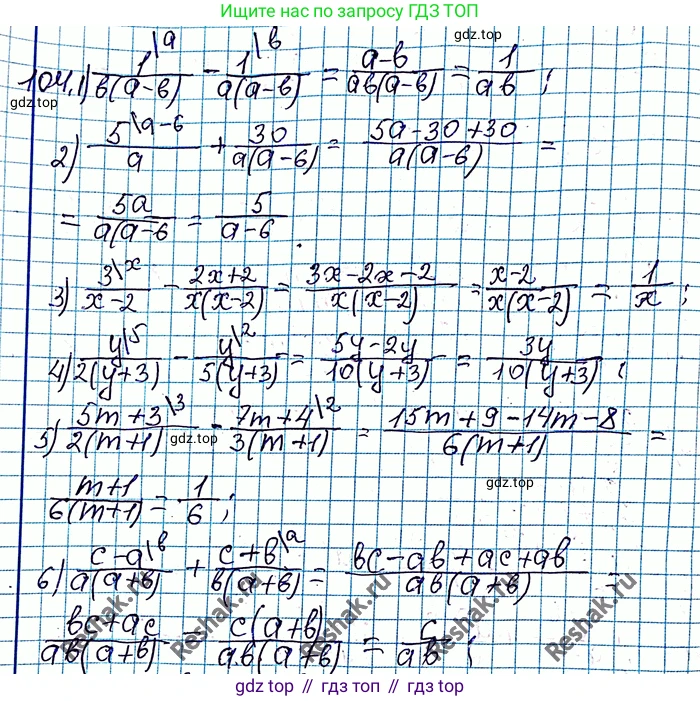 Ищите нас по запросу ГДЗ ТОП
104. 1) 1\a/b(a-b) - 1\b/a(a-b) = a-b/ab(a-b) = 1/ab;
gdz.top
gdz.top
2) 5\a-6/a + 30/a(a-6) = 5a-30+30/a(a-6) =
= 5a/a(a-6 = 5/a-6.
3) 3\x/x-2 - 2x+2/x(x-2) = 3x-2x-2/x(x-2) = x-2/x(x-2) = 1/x;
4) y\5/2(y+3) - y\2/5(y+3) = 5y-2y/10(y+3) = 3y/10(y+3);
5) 5m+3\3/2(m+1) - 7m+4\2/3(m+1) = 15m+9-14m-8/6(m+1) =
gdz.top
gdz.top
m+1/6(m+1) = 1/6;
6) c-a\b/a(a+b) + c+b\a/b(a+b) = bc-ab+ac+ab/ab(a+b) =
bc+ac/ab(a+b) c(a+b)/ab(a+b) = c/ab;
Reshak.ru
Reshak.ru
Reshak.ru
Reshak.ru
gdz.top // гдз.топ // gdz.top